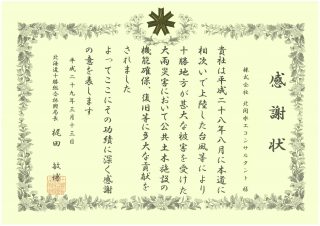 感謝状
株式会社 北開水工コンサルタント 様
貴社は平成二十八年八月に本道に
相次いで上陸した台風等により
十勝地方が甚大な被害を受けた
大雨災害において公共土木施設の
機能確保、復旧等に多大な貢献を
されました
よってここにその功績に深く感謝
の意を表します
平成二十九年三月十三日
北海道十勝総合振興局長 梶田 敏博